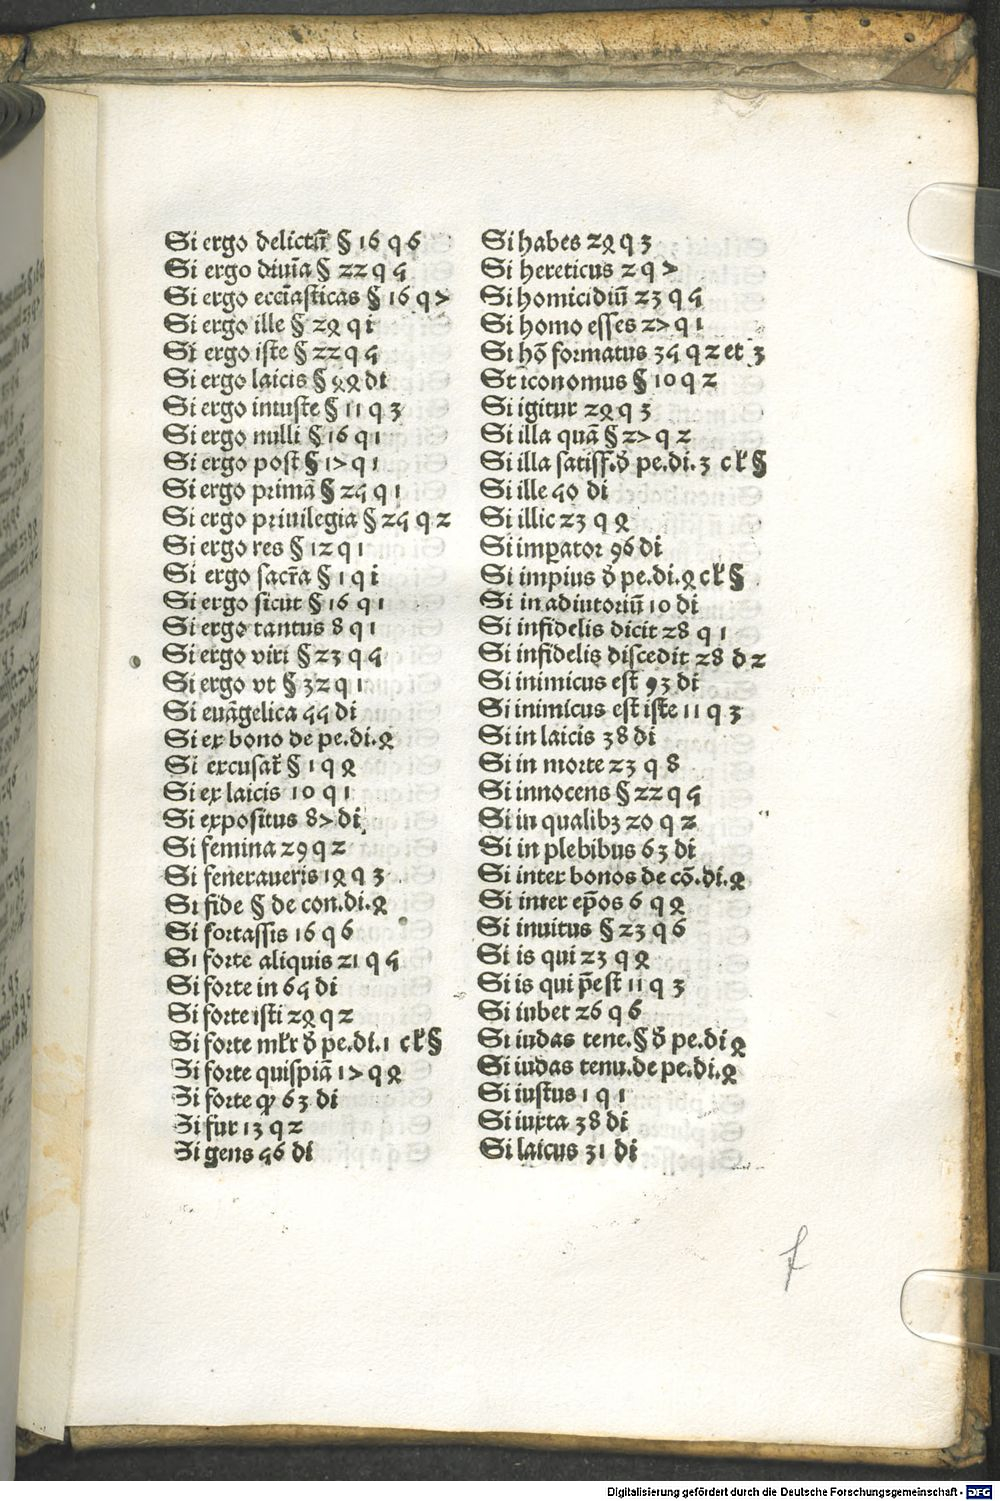 Si ergo delictū § 16 q 6
Si ergo diuīa § 22 q 5
Si ergo eccīasticas § 16 q 7
Si ergo ille § 24 q i
Si ergo iste § 22 q 5
Si ergo laicis § 44 di
Si ergo iniuste § 11 q 3
Si ergo nulli § 16 q 1
Si ergo post̄ § 17 q 1
Si ergo primā § 25 q 1
Si ergo priuilegia § 25 q 2
Si ergo res § 12 q 1
Si ergo sacr̄a § 1 q i
Si ergo sicut § 16 q 1
Si ergo tantus 8 q 1
Si ergo viri § 23 q 5
Si ergo vt § 32 q 1
Si euāgelica 55 di
Si ex bono de pe.di.4
Si excusat̄ § 1 q 4
Si ex laicis 10 q 1
Si expositus 87 di
Si femina 29 q 2
Si feneraueris 14 q 3
Si fide § de con.di.4
Si fortassis 16 q 6
Si forte aliquis 21 q 5
Si forte in 65 di
Si forte isti 24 q 2
Si forte mkr ꝺ̄ pe.di.1 cꝉ §
Si forte quispiā 17 q 4
Si forte ꝙ 63 di
Si fur 13 q 2
Si gens 56 di
Si habes 24 q 3
Si hereticus 2 q 7
Si homicidiū 23 q 5
Si homo esses 27 q 1
Si hō formatus 35 q 2 et 3
St iconomus § 10 q 2
Si igitur 24 q 3
Si illa quā § 27 q 2
Si illa satisf.ꝺ̄ pe.di.3 cꝉ §
Si ille 50 di
Si illic 23 q 4
Si imꝑator 96 di
Si impius ꝺ̄ pe.di.4 cꝉ §
Si in adiutoriū 10 di
Si infidelis dicit 28 q 1
Si infidelis discedit 28 d 2
Si inimicus est̄ 93 di
Si inimicus est iste 11 q 3
Si in laicis 38 di
Si in morte 23 q 8
Si innocens § 22 q 5
Si in qualibꝫ 20 q 2
Si in plebibus 63 di
Si inter bonos de cō.di.4
Si inter ep̄os 6 q 4
Si inuitus § 23 q 6
Si is qui 23 q 4
Si is qui p̄est 11 q 3
Si iubet 26 q 6
Si iudas tene.§ ꝺ̄ pe.di 4
Si iudas tenu.de pe.di.4
Si iustus 1 q 1
Si iuxta 38 di
Si laicus 31 di
Digitalisierung gefördert durch die Deutsche Forschungsgemeinschaft - DFG